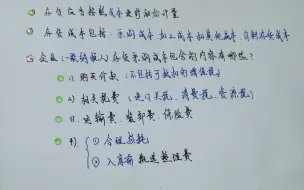 存货应当按照成本进行初始计量
存货成本包括：采购成本、加工成本和其他成本，自制存货成本
企业(一般纳税人)存货采购成本包含的内容有哪些？
1). 购买价款 (不包括可抵扣的增值税)
2) 相关税费 (进口关税、消费税、资源税)
3). 运输费、装卸费、保险费
4). ① 合理损耗
② 入库前挑选整理费